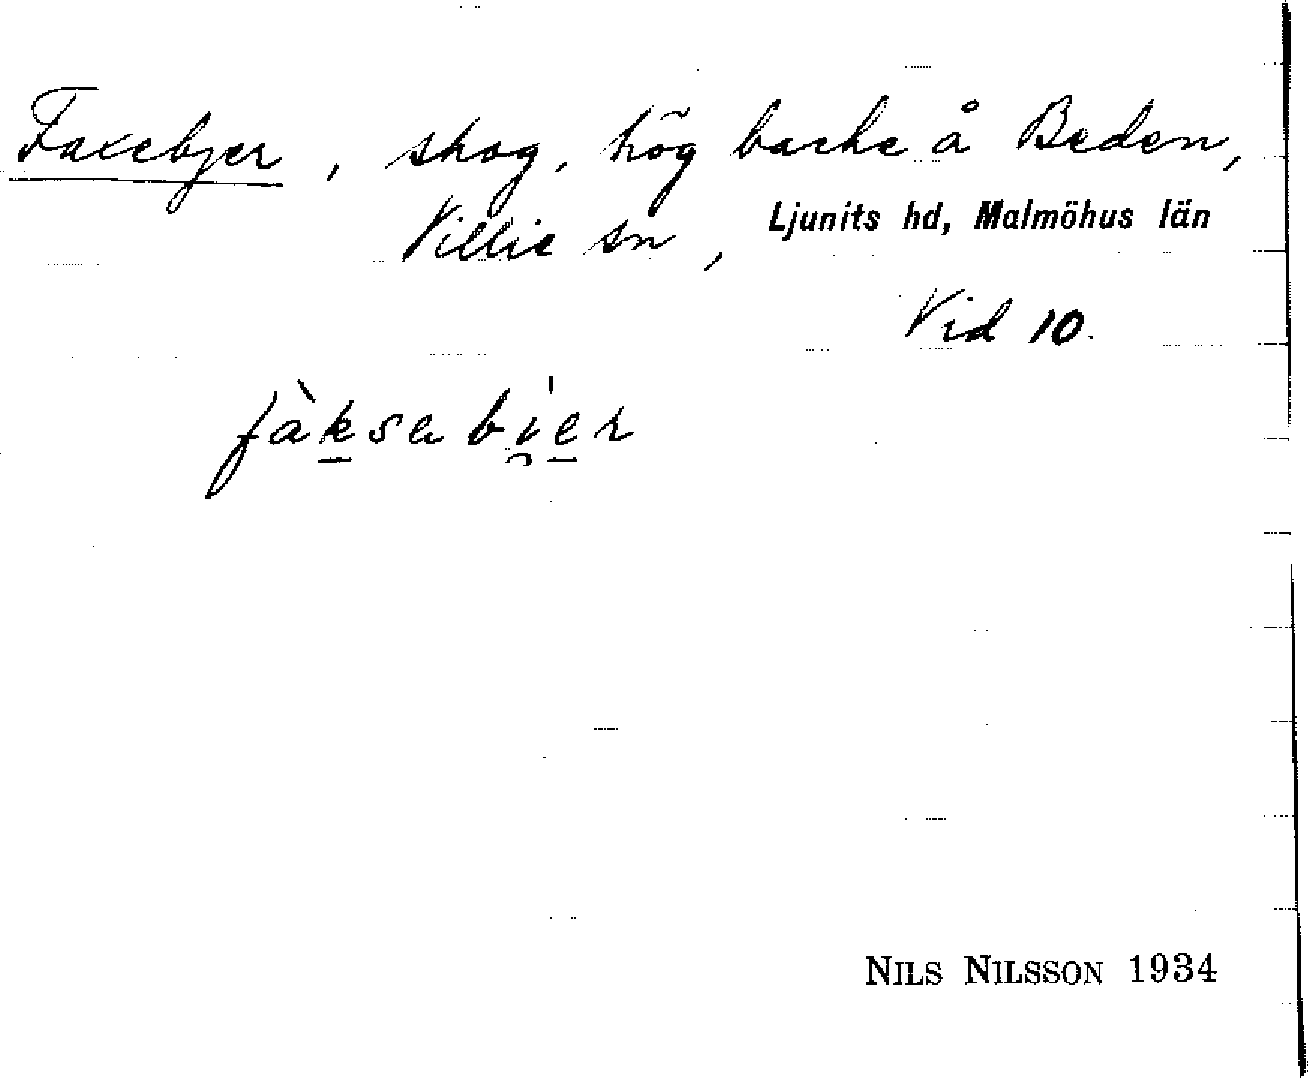 Faxebjer, skog, hög backe å Beden,
Villie sn, Ljunits hd, Malmöhus län
Vid 10.
fàksabi̯er
NILS NILSSON 1934